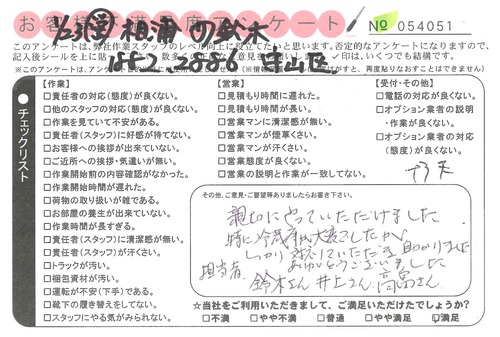 お客様満足度アンケート
№ 054051
1/23 相浦の鈴木
このアンケートは、弊社作業スタッフのレベル向上に役立てたいと思います。否定的なアンケートになりますので、
記入後シールを上に貼っ
✓印は、いくつでも結構です。
チェックリスト
【作業】
□責任者の対応(態度)が良くない。
□他のスタッフの対応(態度)が良くない。
□作業を見ていて不安がある。
□責任者(スタッフ)に好感が持てない。
□お客様への挨拶が出来ていない。
□ご近所への挨拶・気遣いが無い。
□作業開始前の内容確認がなかった。
□作業開始時間が遅れた。
□荷物の取り扱いが雑である。
□お部屋の養生が出来ていない。
□作業時間が長すぎる。
□責任者(スタッフ)に清潔感が無い。
□責任者(スタッフ)が汗くさい。
□トラックが汚い。
□梱包資材が汚い。
□運転が不安(下手)である。
□靴下の履き替えをしてない。
□スタッフにやる気がみられない。
【営業】
□見積もり時間に遅れた。
□見積もり時間が長い。
□営業マンに清潔感が無い。
□営業マンが煙草くさい。
□営業マンが汗くさい。
□営業態度が良くない。
□営業の説明と作業が一致してない。
【受付・その他】
□電話の対応が良くない。
□オプション業者の説明
・作業が良くない。
□オプション業者の対応
(態度)が良くない。
その他、ご意見・ご要望等ありましたらお書き下さい。
親切にやっていただけました
特に冷蔵庫が大変でしたが、
しっかり対応していただき助かりました
ありがとうございました
担当者 鈴木さん 井上さん 高畠さん
☆当社をご利用いただきまして、ご満足いただけたでしょうか?
□不満 □やや不満 □普通 □やや満足 ☑満足